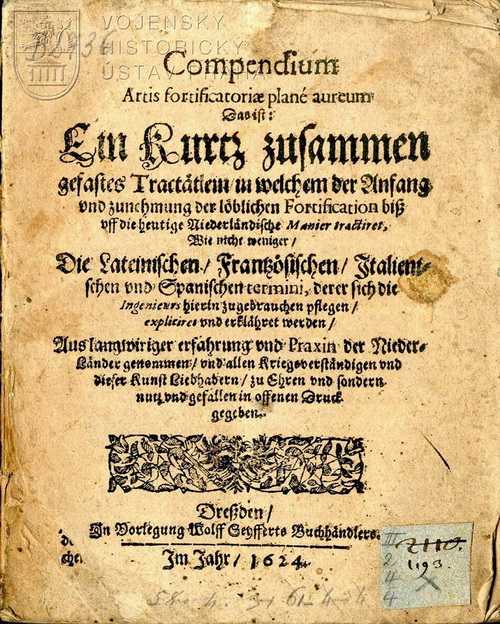 VOJENSKÝ
HISTORICKÝ
ÚSTAV PRAHA
Compendium
Artis fortificatoriæ planè aureum
Das ist:
Ein Kurtz zusammen
gefastes Tractätlein / in welchem der Anfang
vnd zunehmung der löblichen Fortification biß
vff die heutige Niederländische Manier tractiret,
Wie nicht weniger /
Die Lateinischen / Frantzösischen / Italieni-
schen vnd Spanischen termini, derer sich die
Ingenieurs hierin zugebrauchen pflegen /
expliciret vnd erklähret werden /
Aus langwiriger erfahrung vnd Praxin der Nieder-
Länder genommen / vnd allen Kriegsverständigen vnd
dieser Kunst Liebhabern / zu Ehren vnd sondern
nutz vnd gefallen in offenen Druck
gegeben.
Dreßden /
In Vorlegung Wolff Seyfferts Buchhändlers.
Im Jahr / 1624.
III
2
4
4
2110.
1193.